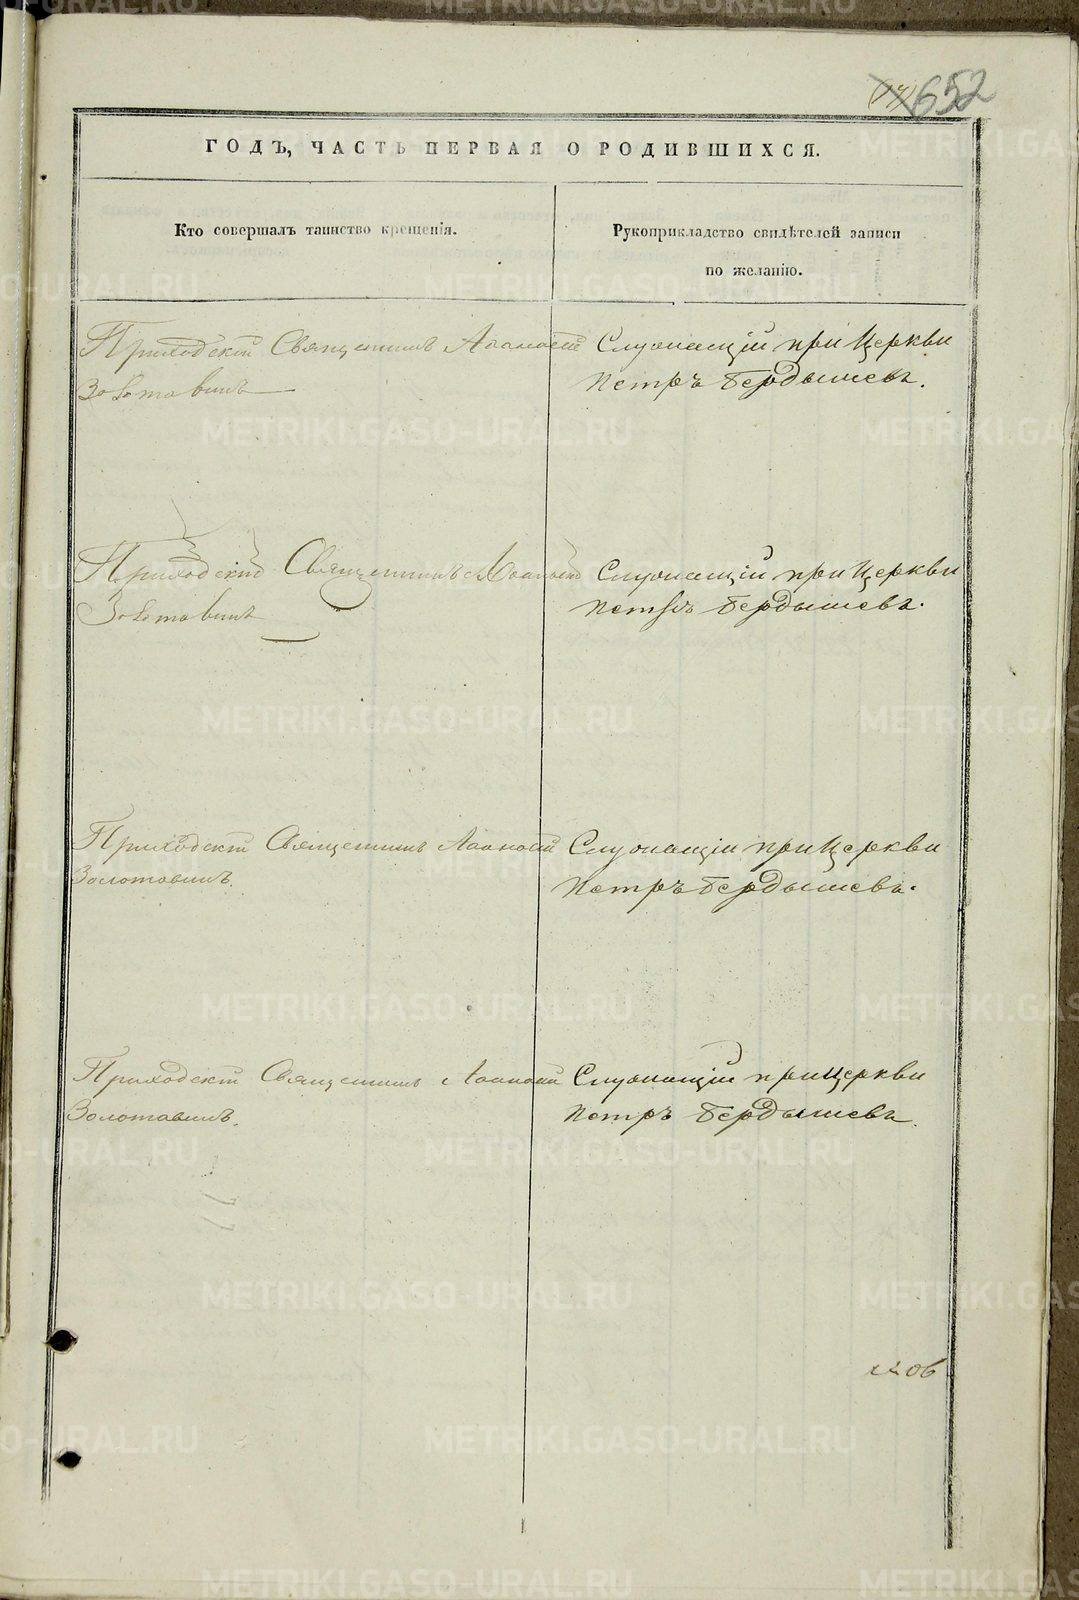 652
ГОДЪ, ЧАСТЬ ПЕРВАЯ О РОДИВШИХСЯ.
Кто совершалъ таинство крещенія.
Рукоприкладство свидѣтелей записи
по желанію.
Приходскій Священникъ
Золотавинъ
Служащій при Церкви
Петръ Бердышевъ.
Приходскій Священникъ
Золотавинъ
Служащій при Церкви
Петръ Бердышевъ.
Приходскій Священникъ
Золотавинъ.
Служащій при Церкви
Петръ Бердышевъ.
Приходскій Священникъ
Золотавинъ.
Служащій при Церкви
Петръ Бердышевъ.
METRIKI.GASO-URAL.RU